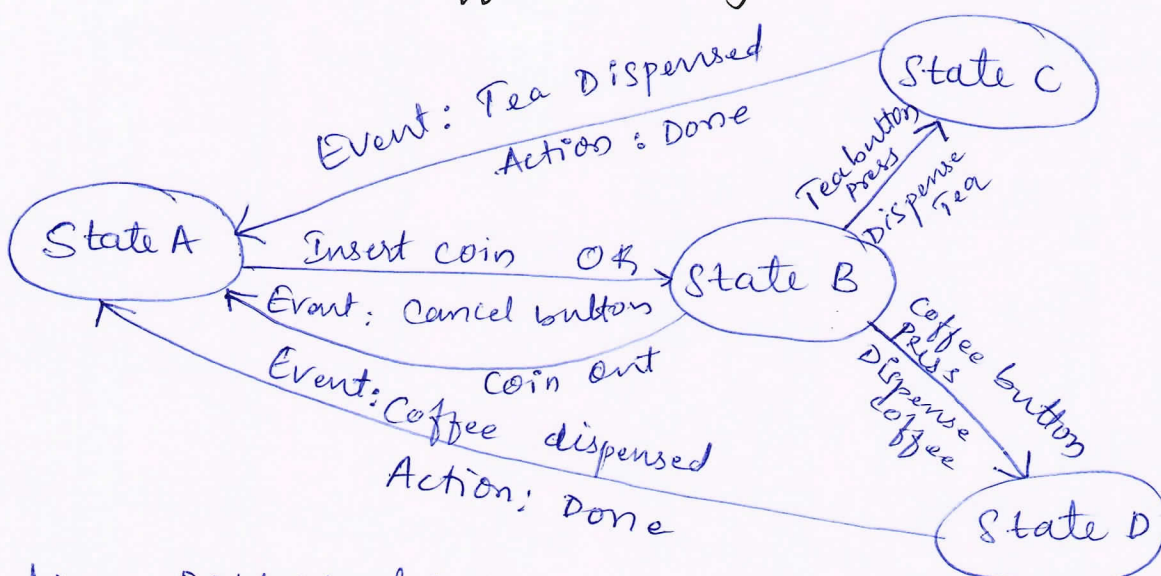 State C
Event: Tea Dispensed
Action: Done
Tea button
press
Dispense
Tea
State A
Insert coin OK
State B
Event: Cancel button
Coin out
Coffee button
press
Dispense
Coffee
Event: Coffee dispensed
Action: Done
State D